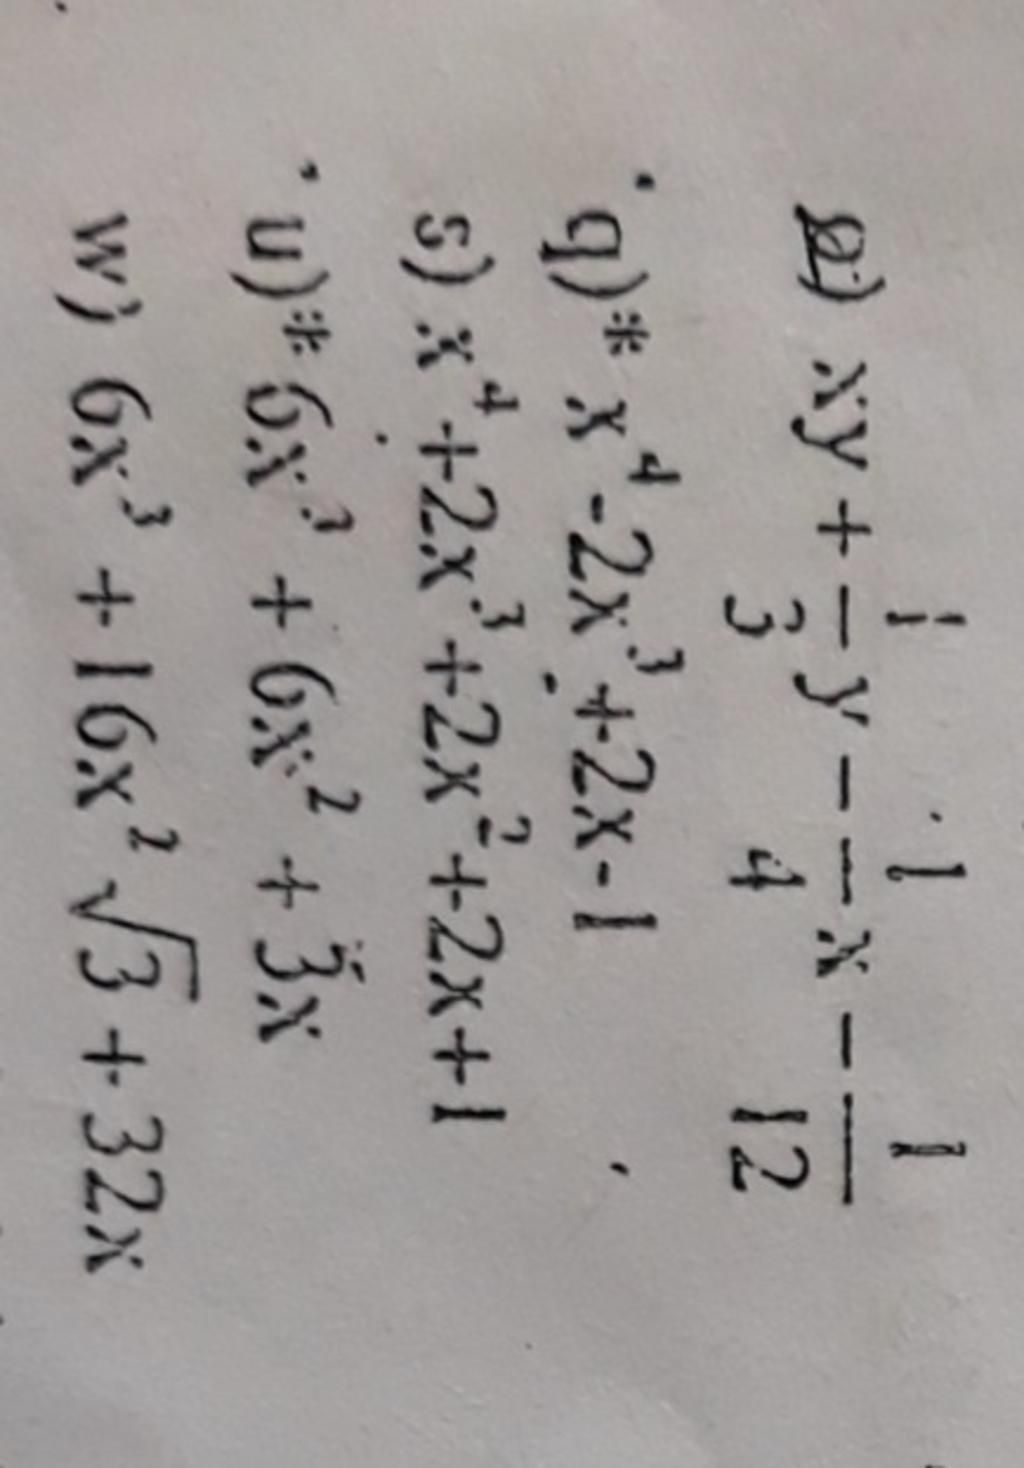 o) xy + 1/3 y - 1/4 x - 1/12
q)* x⁴ - 2x³ + 2x - 1
s) x⁴ + 2x³ + 2x² + 2x + 1
u)* 6x³ + 6x² + 3x
w) 6x³ + 16x² √3 + 32x